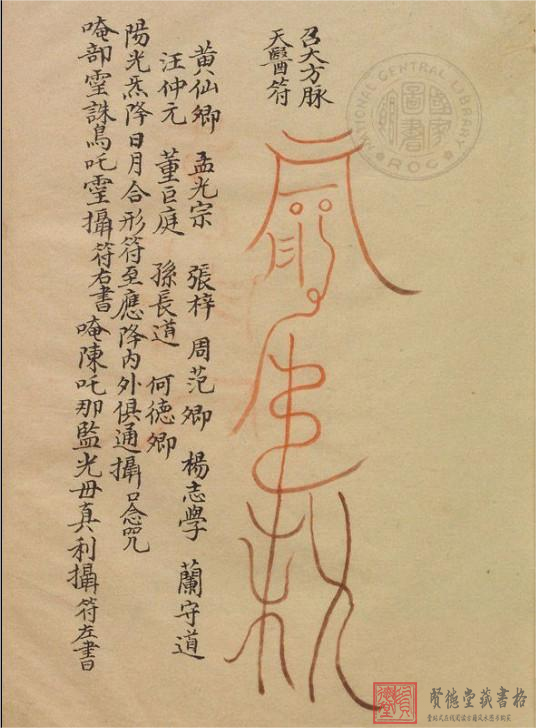 召大方脉
天醫符
黄仙卿 孟光宗 張梓 周范卿 楊志學 蘭守道
汪仲元 董巨庭 孫長道 何德卿
陽光炁降日月合形符至應降內外俱通攝口念咒
唵部霻誅鳥吒霻攝符右書 唵陳吒那監光毋真利攝符左書
NATIONAL CENTRAL LIBRARY
ROC
國家圖書館
賢德堂藏書格